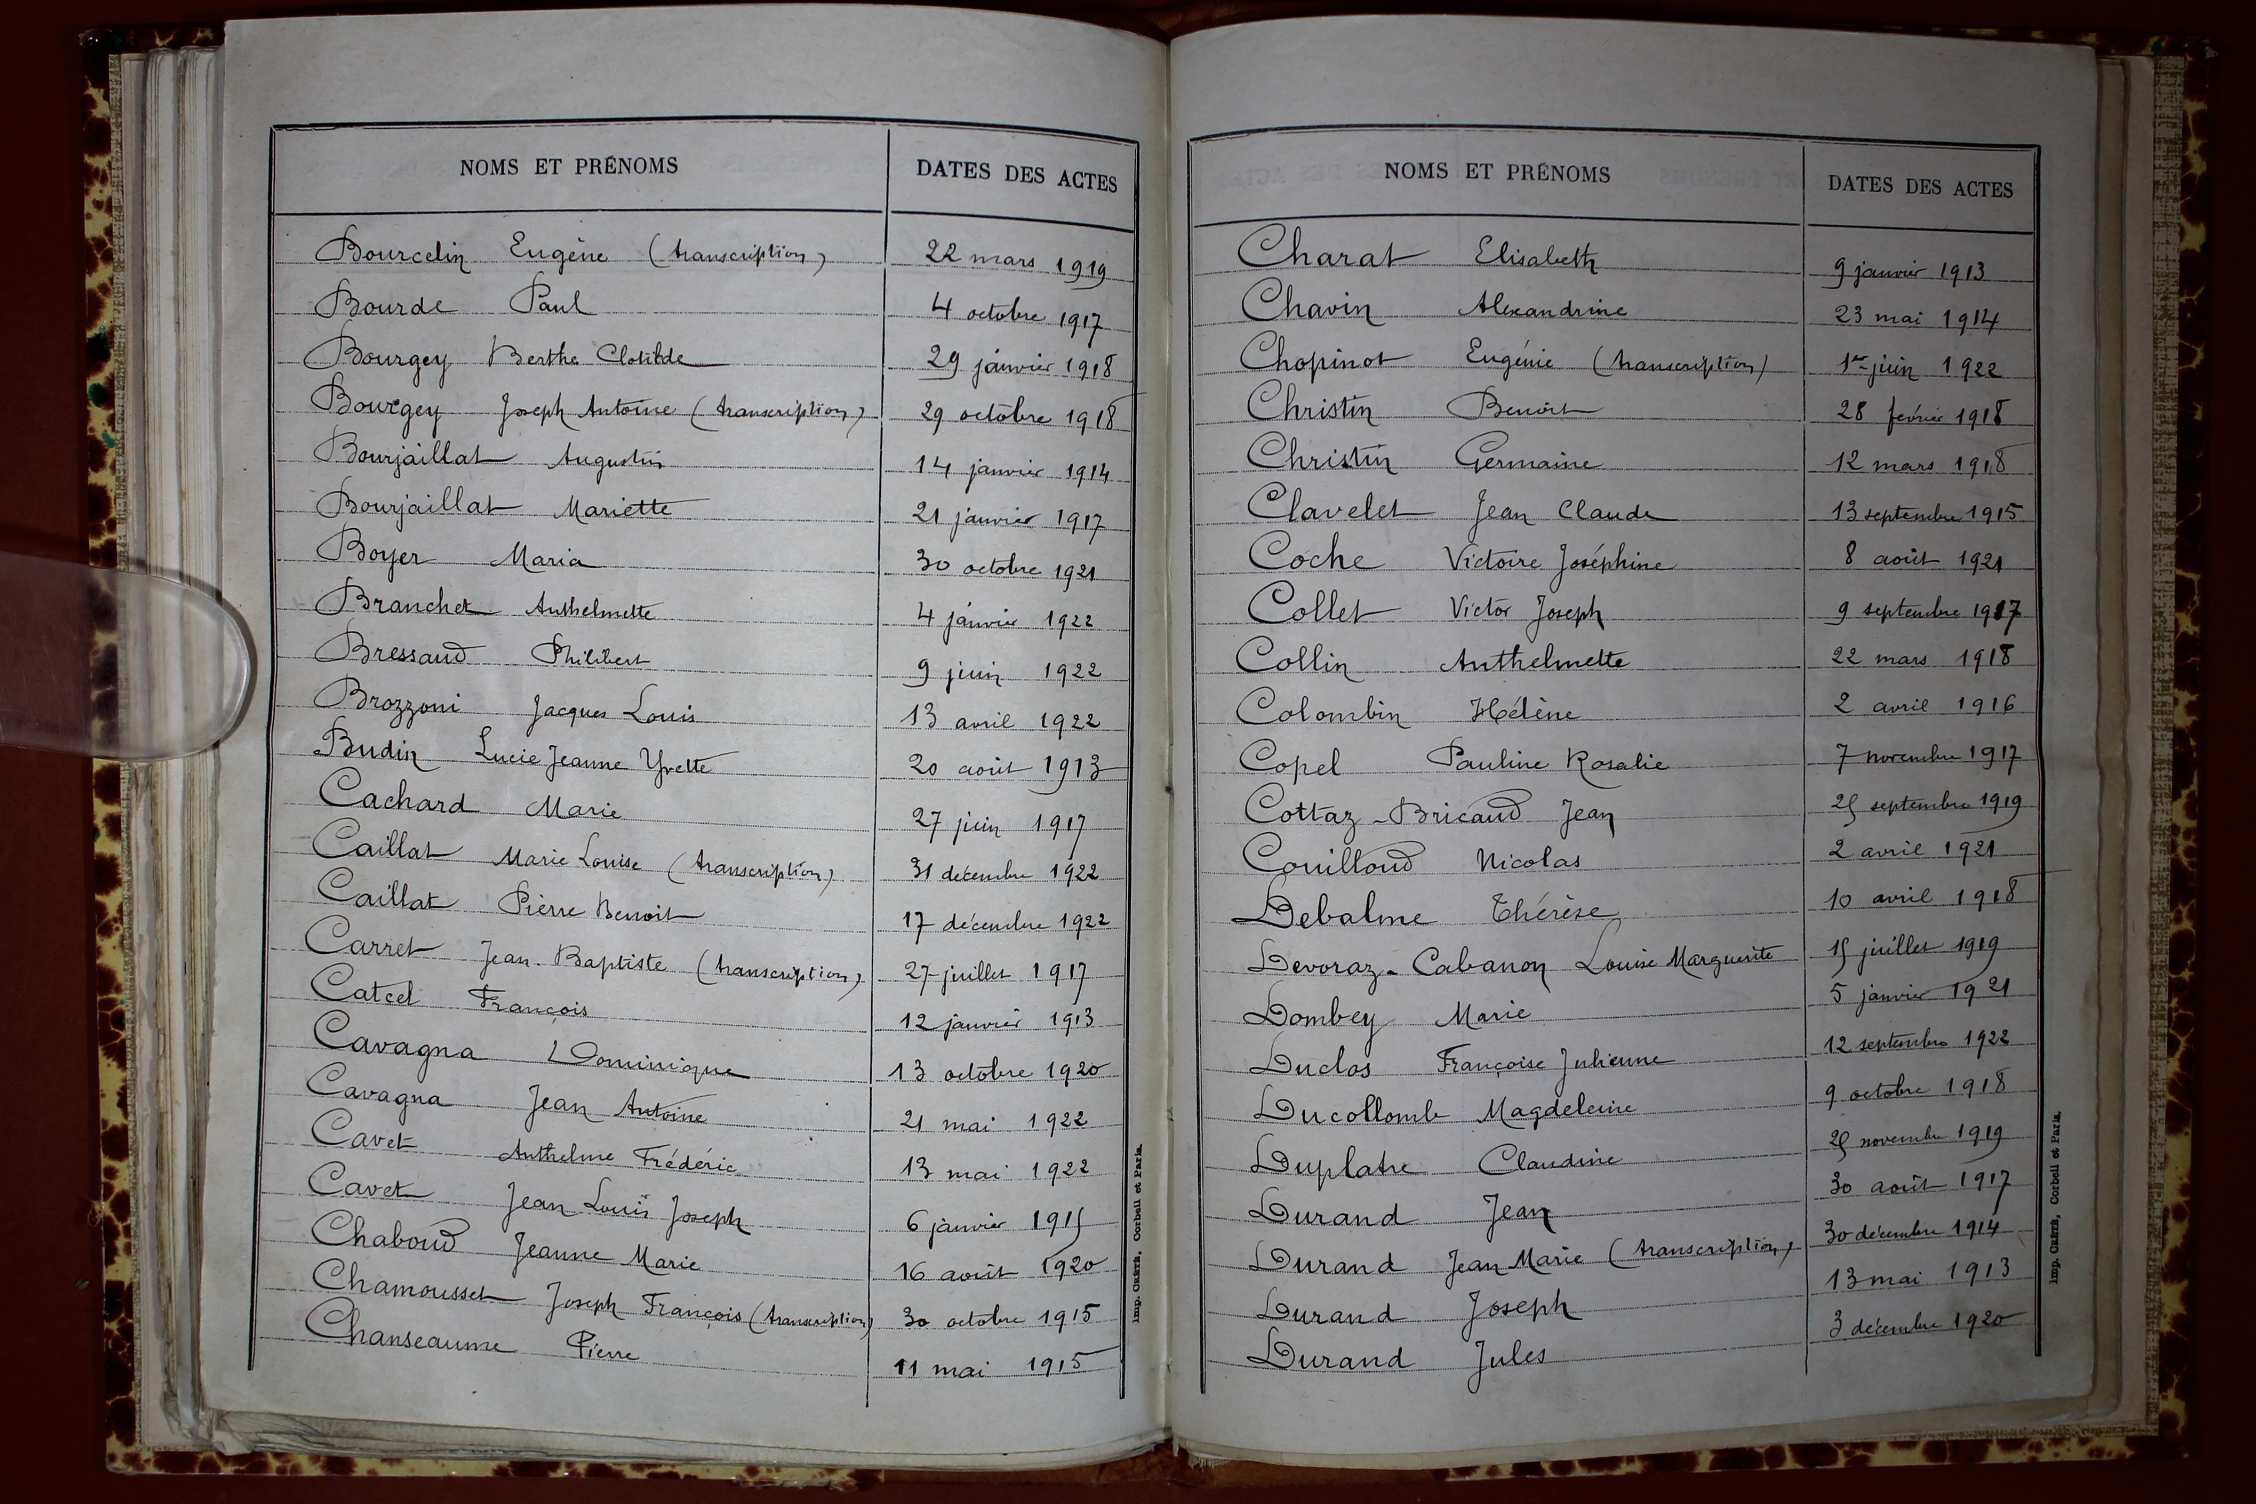 NOMS ET PRÉNOMS DATES DES ACTES
Bourcelin Eugène (transcription) 22 mars 1919
Bourde Paul 4 octobre 1917
Bourgey Berthe Clotilde 29 janvier 1918
Bourgey Joseph Antoine (transcription) 29 octobre 1918
Bourjaillat Augustin 14 janvier 1914
Bourjaillat Mariette 21 janvier 1917
Boyer Maria 30 octobre 1921
Branchet Anthelmette 4 janvier 1922
Bressaud Philibert 9 juin 1922
Brozzoni Jacques Louis 13 avril 1922
Budin Lucie Jeanne Yvette 20 août 1913
Cachard Marie 27 juin 1917
Caillat Marie Louise (transcription) 31 décembre 1922
Caillat Pierre Benoit 17 décembre 1922
Carret Jean-Baptiste (transcription) 27 juillet 1917
Catcel François 12 janvier 1913
Cavagna Dominique 13 octobre 1920
Cavagna Jean Antoine 21 mai 1922
Cavet Anthelme Frédéric 13 mai 1922
Cavet Jean Louis Joseph 6 janvier 1915
Chaboud Jeanne Marie 16 août 1920
Chamousset Joseph François (transcription) 30 octobre 1915
Chanseaume Pierre 11 mai 1915
Imp. Crété, Corbeil et Paris.
NOMS ET PRÉNOMS DATES DES ACTES
Charat Elisabeth 9 janvier 1913
Chavin Alexandrine 23 mai 1914
Chopinot Eugénie (transcription) 1er juin 1922
Christin Benoit 28 février 1918
Christin Germaine 12 mars 1918
Clavelet Jean Claude 13 septembre 1915
Coche Victoire Joséphine 8 août 1921
Collet Victor Joseph 9 septembre 1917
Collin Anthelmette 22 mars 1918
Colombin Hélène 2 avril 1916
Copel Pauline Rosalie 7 novembre 1917
Cottaz-Bricaud Jean 25 septembre 1919
Couilloud Nicolas 2 avril 1921
Debalme Thérèse 10 avril 1918
Devoraz-Cabanon Louise Marguerite 15 juillet 1919
Dombey Marie 5 janvier 1921
Duclos Françoise Julienne 12 septembre 1922
Ducollomb Magdeleine 9 octobre 1918
Duplatre Claudine 25 novembre 1919
Durand Jean 30 août 1917
Durand Jean Marie (transcription) 30 décembre 1914
Durand Joseph 13 mai 1913
Durand Jules 3 décembre 1920
Imp. Crété, Corbeil et Paris.